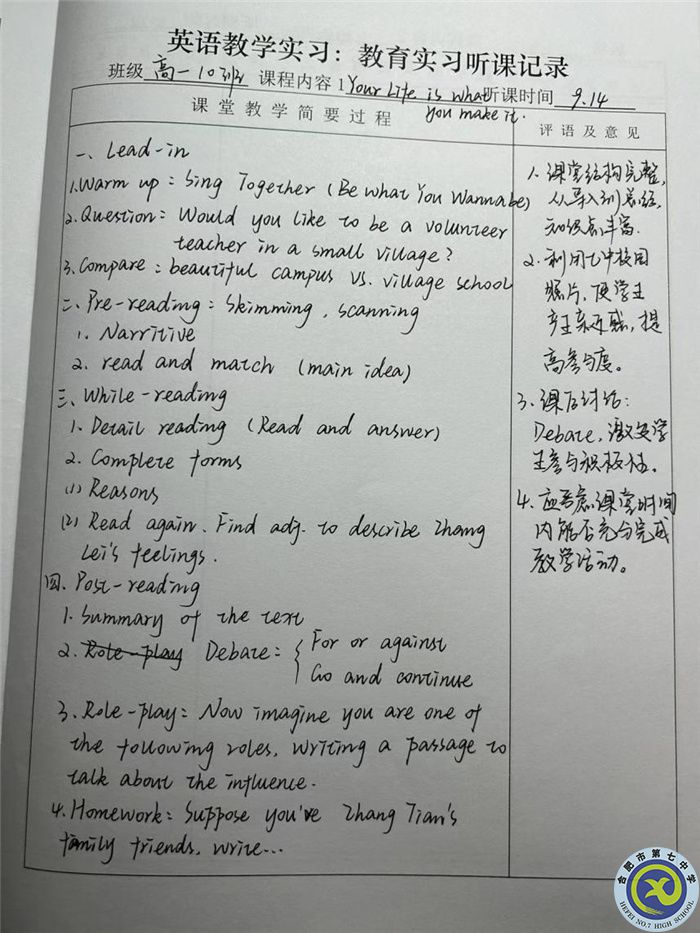 英语教学实习：教育实习听课记录
班级 高一10班 课程内容 1 Your Life is what 听课时间 9.14
you make it.
课堂教学简要过程
评语及意见
一、Lead-in
1.Warm up: Sing Together (Be what You Wannabe)
2.Question: Would you like to be a volunteer
teacher in a small village?
3.Compare: beautiful campus vs. village school
二、Pre-reading: Skimming, scanning
1. Narritive
2. read and match (main idea)
三、While-reading
1. Detail reading (Read and answer)
2. Complete forms
(1) Reasons
(2) Read again. Find adj. to describe Zhang
Lei's feelings.
四、Post-reading
1. Summary of the text
2. Role-play Debate: { For or against
Go and continue
3. Role-play: Now imagine you are one of
the following roles, writing a passage to
talk about the influence.
4.Homework: Suppose you're Zhang Tian's
family friends, write...
1. 课堂结构完整,
从导入到总结,
知识点丰富.
2. 利用七中校园
照片, 使学生
产生亲近感, 提
高参与度。
3. 课后讨论:
Debate, 激发学
生参与积极性。
4. 应考虑课堂时间
内能否充分完成
教学活动。
合肥市第七中学
HEFEI NO.7 HIGH SCHOOL